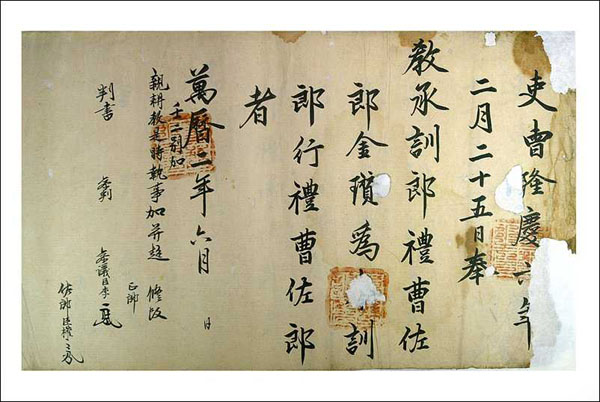 吏曹隆慶六年
二月二十五日奉
敎承訓郎禮曹佐
郎金瓚爲訓
郎行禮曹佐郎
者
萬曆二年六月 日
壬二別加
親耕敎是時執事加幷超 修改
判書 參判 參議臣李
正郎
佐郎臣